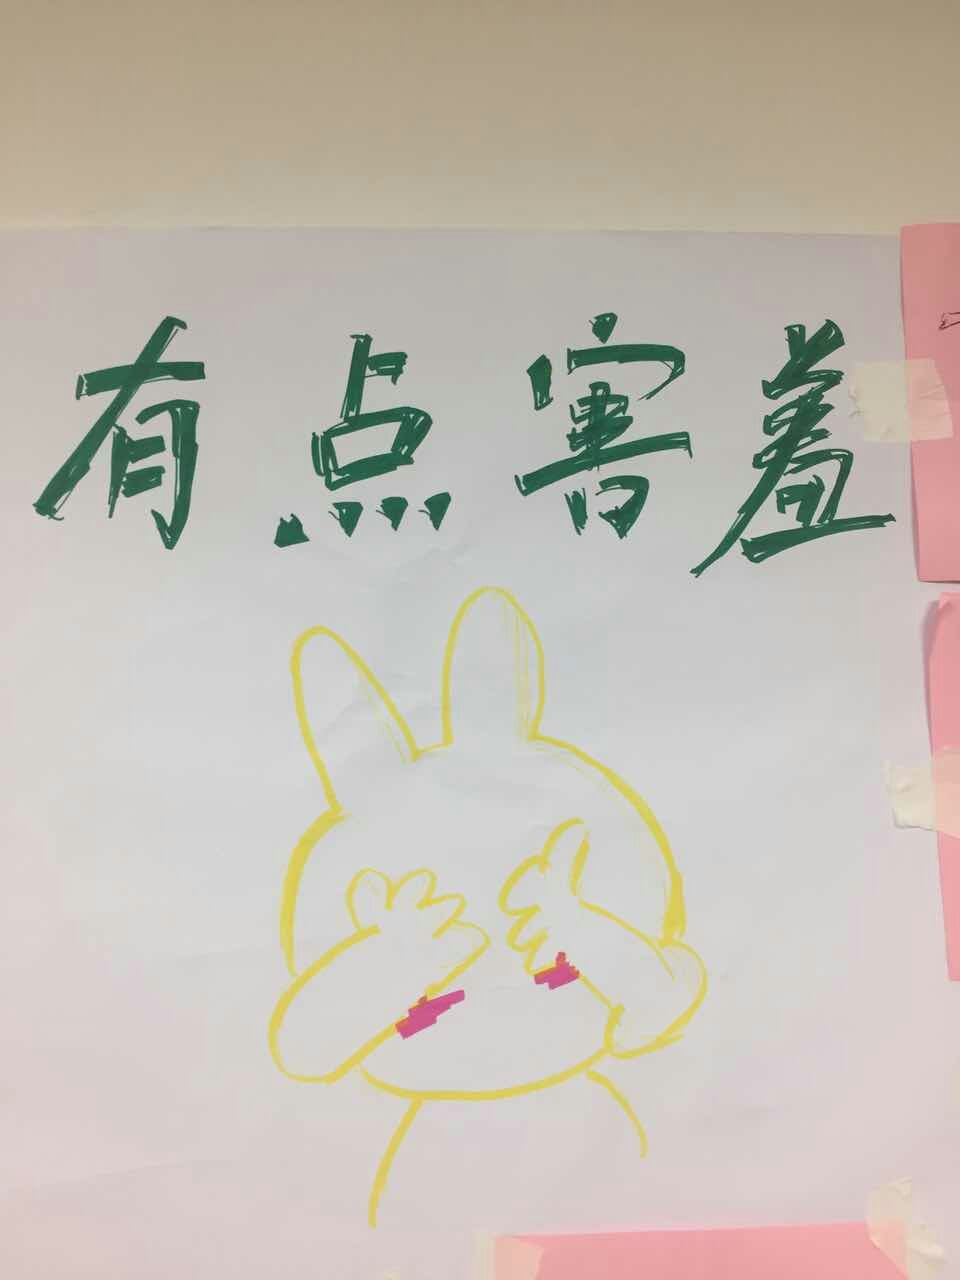 有点害羞